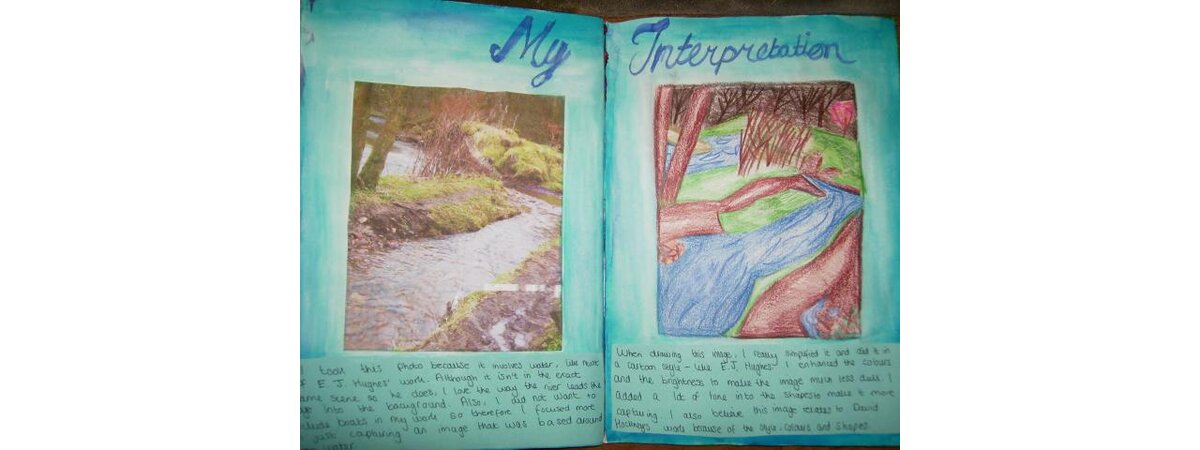 My Interpretation
I took this photo because it involves water, like most
of E. J. Hughes' work. Although it isn't in the exact
same scene as he does, I love the way the river leads the
eye into the background. Also, I did not want to
include boats in my work so therefore I focused more
just capturing an image that was based around
water.
When drawing this image, I really simplified it and did it in
a cartoon style - like E.J. Hughes. I enhanced the colours
and the brightness to make the image much less dull. I
added a lot of tone into the shapes to make it more
capturing. I also believe this image relates to David
Hockney's work because of the style, colours and shapes.